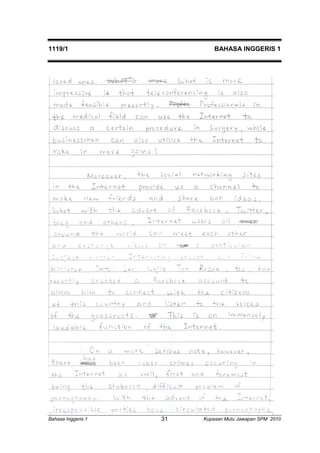 1119/1 BAHASA INGGERIS 1
loved ones. What is more
impressive is that teleconferencing is also
made feasible presently. Professionals in
the medical field can use the Internet to
discuss a certain procedure in surgery, while
businessmen can also utilise the Internet to
rake in more gains!
Moreover, the social networking sites
in the Internet provide us a channel to
make new friends and share our ideas.
What with the advent of Facebook, Twitter,
blog and others, Internet users all
around the world can meet each other
and exchange views on a particular
subject matter. our Prime
Minister, Tun Razak, has
recently created a Facebook account to
allow him to connect with the citizens
of this country and listen to the voices
of the grassroots. This is an immensely
laudable function of the Internet.
On a more serious note, however,
there has been cyber crimes occuring in
the Internet as well, first and foremost
being the stubborn, difficult problem of
pornography. With the advent of the Internet,
irresponsible parties have circulated pornographic
Bahasa Inggeris 1 31 Kupasan Mutu Jawapan SPM 2010